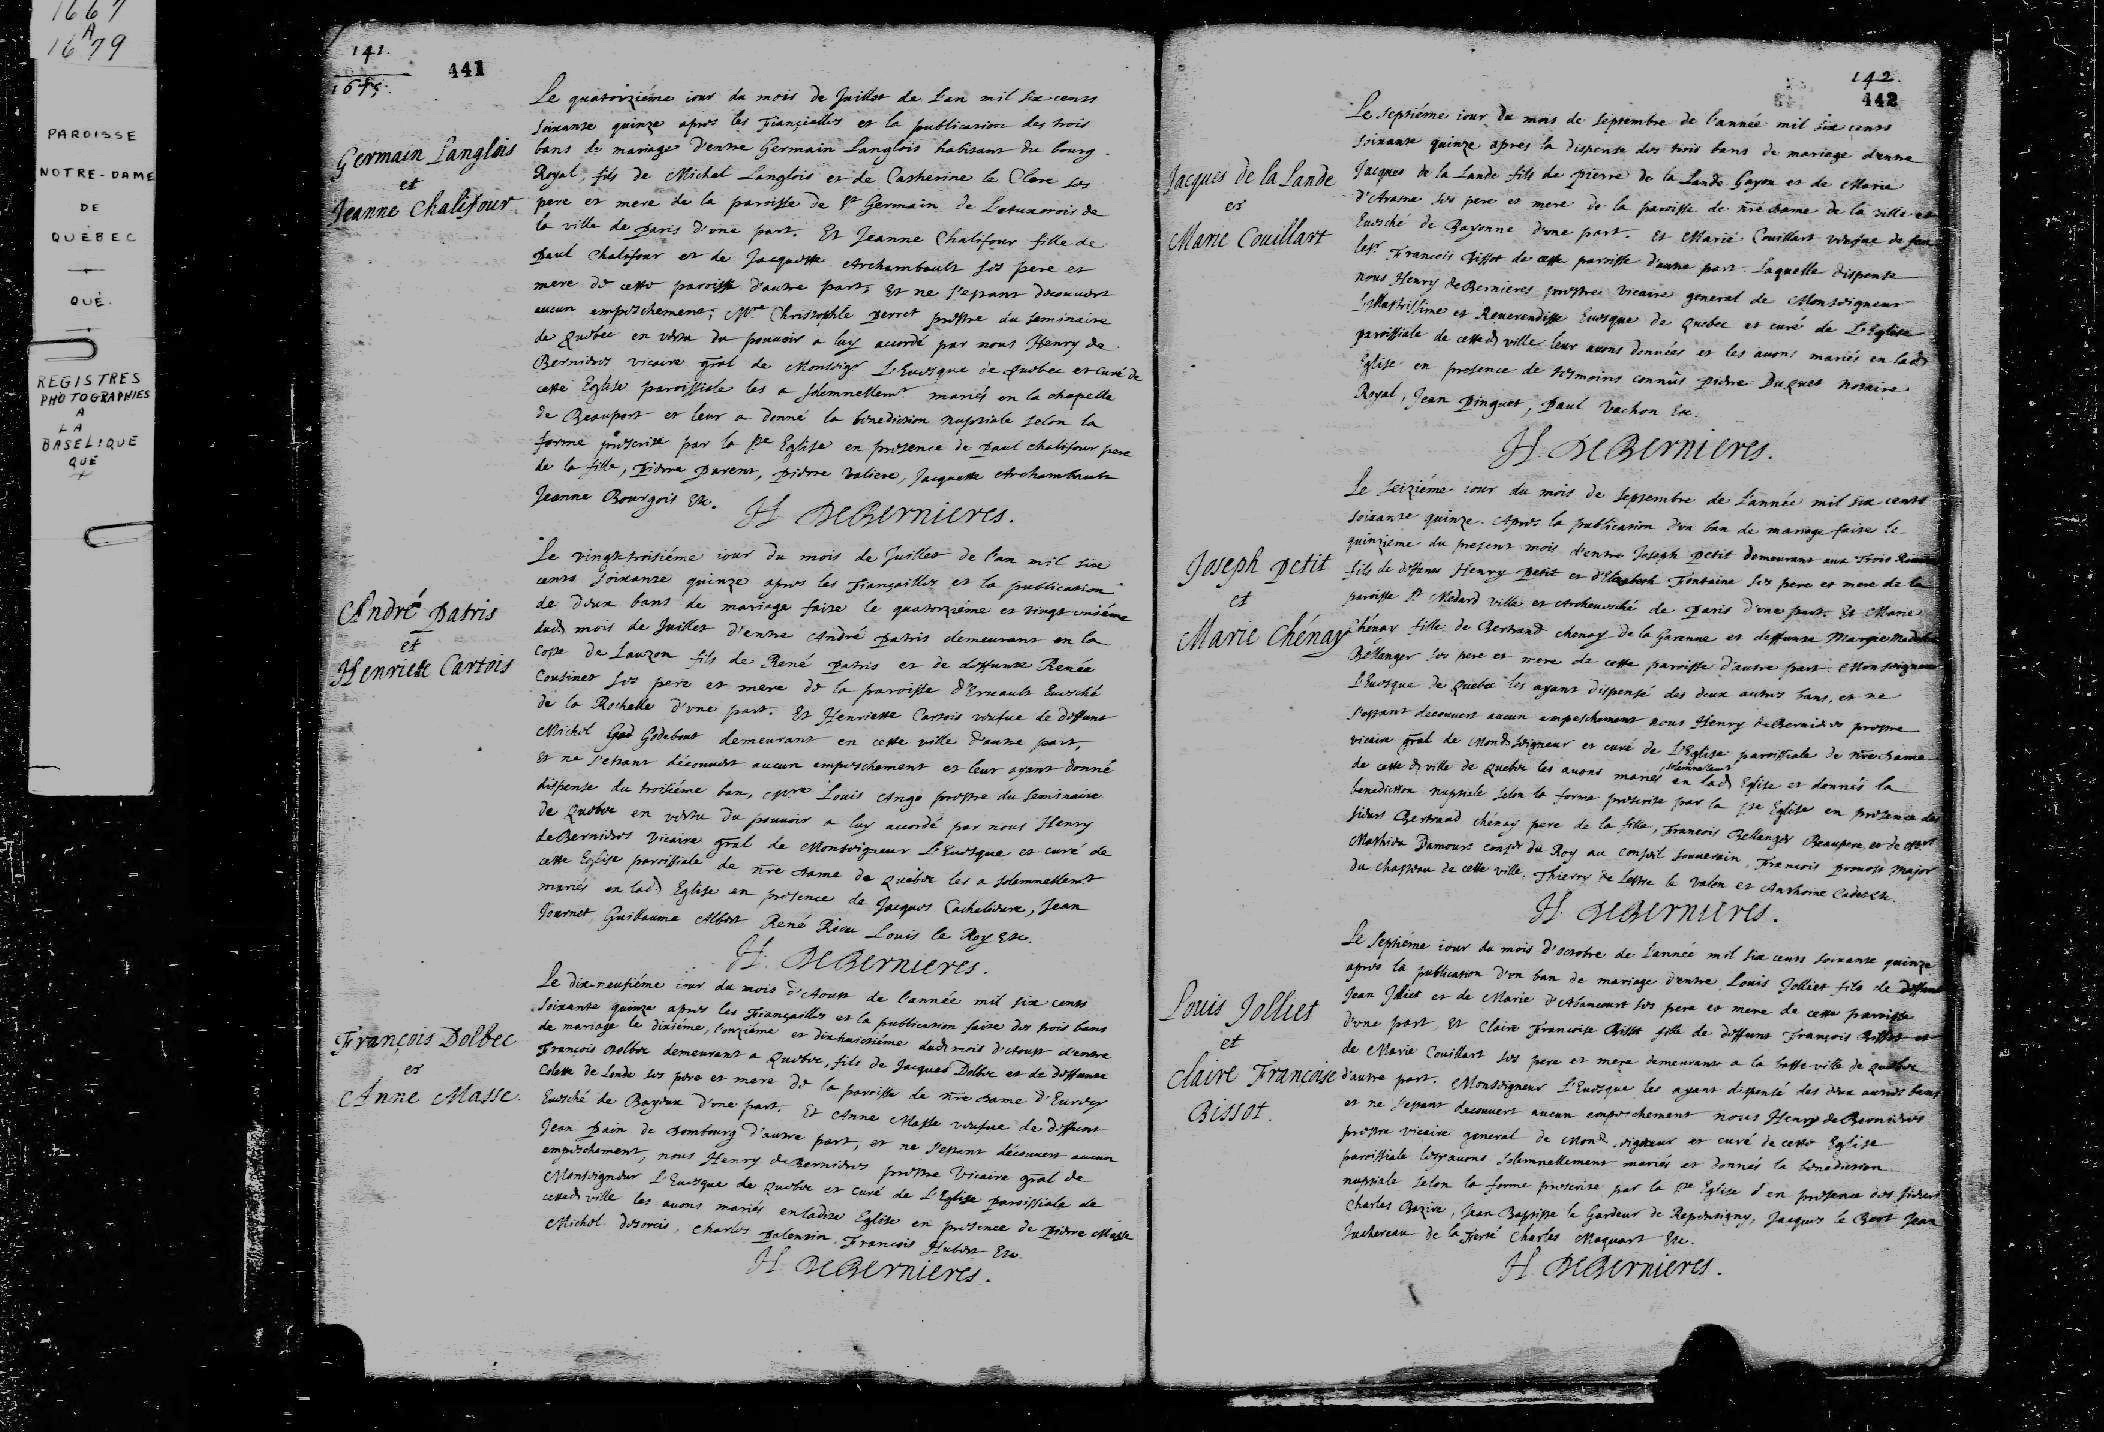 1667
A
1679
PAROISSE
NOTRE-DAME
DE
QUÉBEC
QUÉ.
REGISTRES
PHOTOGRAPHIES
A
LA
BASELIQUE
QUÉ
141.
1675.
441
Germain Langlois
et
Jeanne Chalifour
Le quatorziéme iour du mois de Juillet de l'an mil six cents
soixante quinze apres les Fiançailles et la publication des trois
bans de mariage d'entre Germain Langlois habitant du bourg
Royal, fils de Michel Langlois et de Catherine le Clerc ses
pere et mere de la paroisse de St Germain de Letuxerois de
la ville de Paris d'vne part. Et Jeanne Chalifour fille de
Paul Chalifour et de Jacquette Archambault ses pere et
mere de cette paroisse d'autre part, Et ne s'estant decouuert
aucun empeschement, Mre Christophle perret prestre du seminaire
de Quebec en vertu du pouuoir a luy accordé par nous Henry de
Bernieres vicaire gral de Monseigr L'Euesque de Quebec et Curé de
cette Eglise paroissiale les a solemnellemt mariés en la chapelle
de Beauport et leur a donné la benediction nuptiale selon la
forme prescrite par la Ste Eglise en presence de Paul chalifour pere
de la fille, Pierre Parent, Pierre Valiere, Jacquette Archambault
Jeanne Bourgois Etc.
H. DEBERNIERES.
André Patris
et
Henriette Cartois
Le vingt-troisiéme iour du mois de Juillet de l'an mil six
cents soixante quinze apres les Fiançailles et la publication
de deux bans de mariage faite le quatorziéme et vingt-uniéme
dud mois de Juillet d'entre André Patris demeurant en la
Coste de Lauzon fils de René Patris et de deffunte Renée
Cousinet ses pere et mere de la paroisse d'Ernault Euesché
de la Rochelle d'vne part. Et Henriette Cartois veufue de deffunt
Michel God Godebout demeurant en cette ville d'autre part,
Et ne s'estant découuert aucun empeschement et leur ayant donné
dispense du troisiéme ban, Mre Louis Ango prestre du seminaire
de Quebec en vertu du pouuoir a luy accordé par nous Henry
deBernieres vicaire gral de Monseigneur L'Euesque et curé de
cette Eglise paroissiale de nre dame de Quebec les a solemnellemt
mariés en lad Eglise en presence de Jacques Cachelieure, Jean
Journet, Guillaume Albert René Riou Louis le Roy Etc.
H. DEBERNIERES.
François Dolbec
et
Anne Masse.
Le dix-neufiéme iour du mois d'Aoust de l'année mil six cents
soixante quinze apres les Fiançailles et la publication faite des trois bans
de mariage le dixiéme, l'onziéme et dixhuictiéme dud mois d'Aoust d'entre
François Dolbec demeurant a Quebec, fils de Jacques Dolbec et de deffunte
Colette de Lende ses pere et mere de la paroisse de nre dame d'Eurecy
Euesché de Bayeux d'vne part. Et Anne Masse veufue de deffunt
Jean Pain de Dombourg d'autre part, et ne s'estant découuert aucun
empeschement, nous Henry deBernieres prestre Vicaire gral de
Monseigneur L'Euesque de Quebec et Curé de L'Eglise paroissiale de
cetted ville les auons mariés en ladite Eglise en presence de Pierre Masse
Michel desorcis, Charles Palentin, François Hubert Etc.
H. DEBERNIERES.
142.
442
Jacques de la Lande
et
Marie Couillart
Le septiéme iour du mois de septembre de l'année mil six cents
soixante quinze apres la dispense des trois bans de mariage d'entre
Jacques de la Lande fils de pierre de la Lande Gayon et de Marie
d'Arasne ses pere et mere de la paroisse de nre dame de la ville et
Euesché de Bayonne d'vne part. et Marie Couillart veufue de feu
le sr François Bissot de cette paroisse d'autre part. Laquelle dispense
nous Henry de Bernieres prestre vicaire general de Monseigneur
Illustrissime et Reuerendisse Euesque de Quebec et curé de L'Eglise
paroissiale de cetted ville leur auons données et les auons mariés en lad
Eglise en presence de tesmoins connûs Pierre Duquet notaire
Royal, Jean Pinguet, Paul Vachon Etc.
H. DEBERNIERES.
Joseph Petit
et
Marie Chénay
Le seiziéme iour du mois de septembre de L'année mil six cents
soixante quinze. Apres la publication d'vn ban de mariage faite le
quinziéme du present mois d'entre Joseph Petit demeurant aux trois
fils de deffunt Henry Petit et d'Elizabeth Fontaine ses pere et mere de la
paroisse St Medard ville et Archeuesché de Paris d'vne part. Et Marie
Chénay fille de Bertrand chenay de la Garenne et deffunte
Bellanger ses pere et mere de cette paroisse d'autre part. Monseigneur
L'Euesque de Quebec les ayant dispensé des deux autres bans, et ne
s'estant decouuert aucun empeschement nous Henry deBernieres prestre
vicaire gral de Mondseigneur et curé de L'Eglise paroissiale de nre dame
de cette d ville de Quebec les auons mariés solemnellemt en lad Eglise et donnés la
benediction nuptiale selon la forme prescrite par la Ste Eglise en presence des
sieurs Bertrand chénay pere de la fille, François Bellanger Beaupere
Mathieu Damours conser du Roy au conseil souuerain François prouost Major
du Chasteau de cette ville, Thierry de Lestre le Valon et Anthoine Cadet.
H. DEBERNIERES.
Louis Jolliet
et
Claire Françoise
Bissot.
Le septiéme iour du mois d'octobre de l'année mil six cents soixante quinze
apres la publication d'vn ban de mariage d'entre Louis Jolliet fils de deffunt
Jean Jolliet et de Marie d'Abancourt ses pere et mere de cette paroisse
d'vne part, Et Claire Françoise Bissot fille de deffunt François Bissot et
de Marie Couillart ses pere et mere demeurante a la basse-ville de Quebec
d'autre part. Monseigneur L'Euesque les ayant dispensé des deux autres bans
et ne s'estant decouuert aucun empeschement nous Henry deBernieres
prestre vicaire general de Mond. seigneur et curé de cette Eglise
paroissiale les auons solemnellement mariés et donnés la benediction
nuptiale selon la forme prescrite par la Ste Eglise d en presence des sieurs
Charles Bazire, Jean Baptiste le Gardeur de Repentigny, Jacques le Bert Jean
Juchereau de la Ferté Charles Maquart Etc.
H. DEBERNIERES.